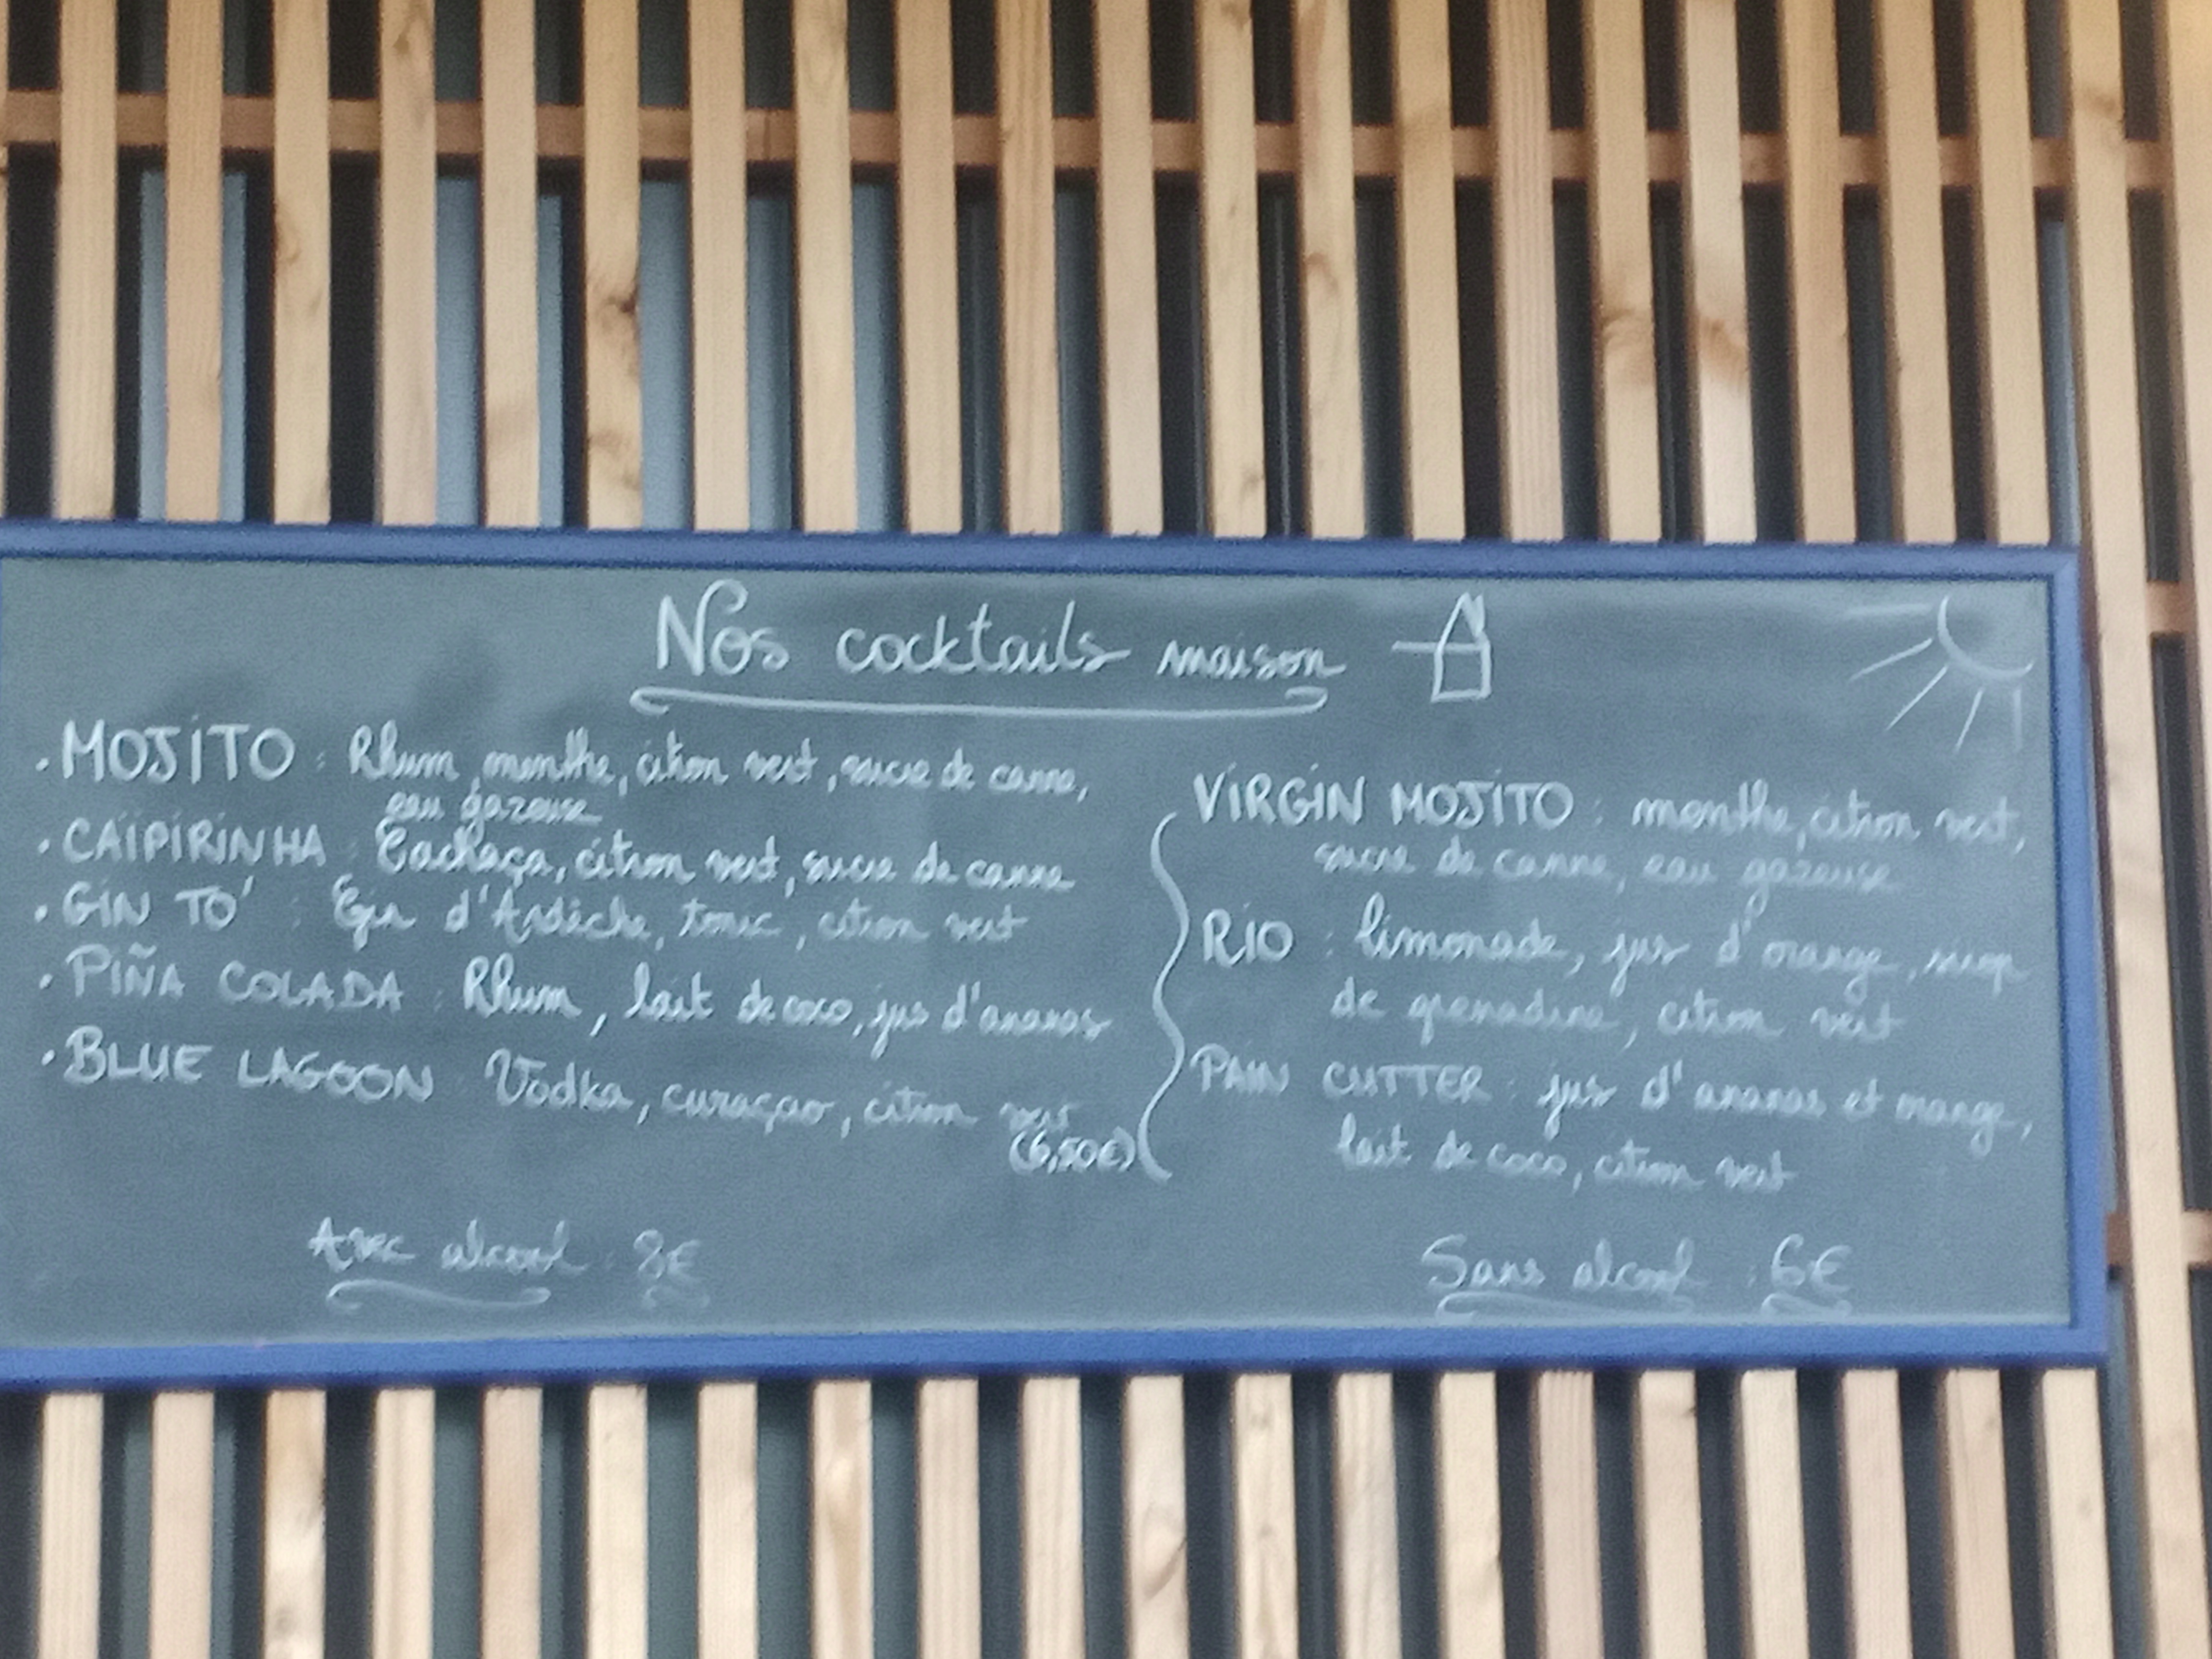 Nos cocktails maison
. MOJITO : Rhum, menthe, citron vert, sucre de canne,
eau gazeuse
. CAÏPIRINHA : Cachaça, citron vert, sucre de canne
. GIN TO' : Gin d'Ardèche, tonic, citron vert
. PIÑA COLADA : Rhum, lait de coco, jus d'ananas
. BLUE LAGOON : Vodka, curaçao, citron vert
(6,50€)
Avec alcool : 8€
VIRGIN MOJITO : menthe, citron vert,
sucre de canne, eau gazeuse
RIO : limonade, jus d'orange, sirop
de grenadine, citron vert
PAIN CUTTER : jus d'ananas et mange,
lait de coco, citron vert
Sans alcool : 6€